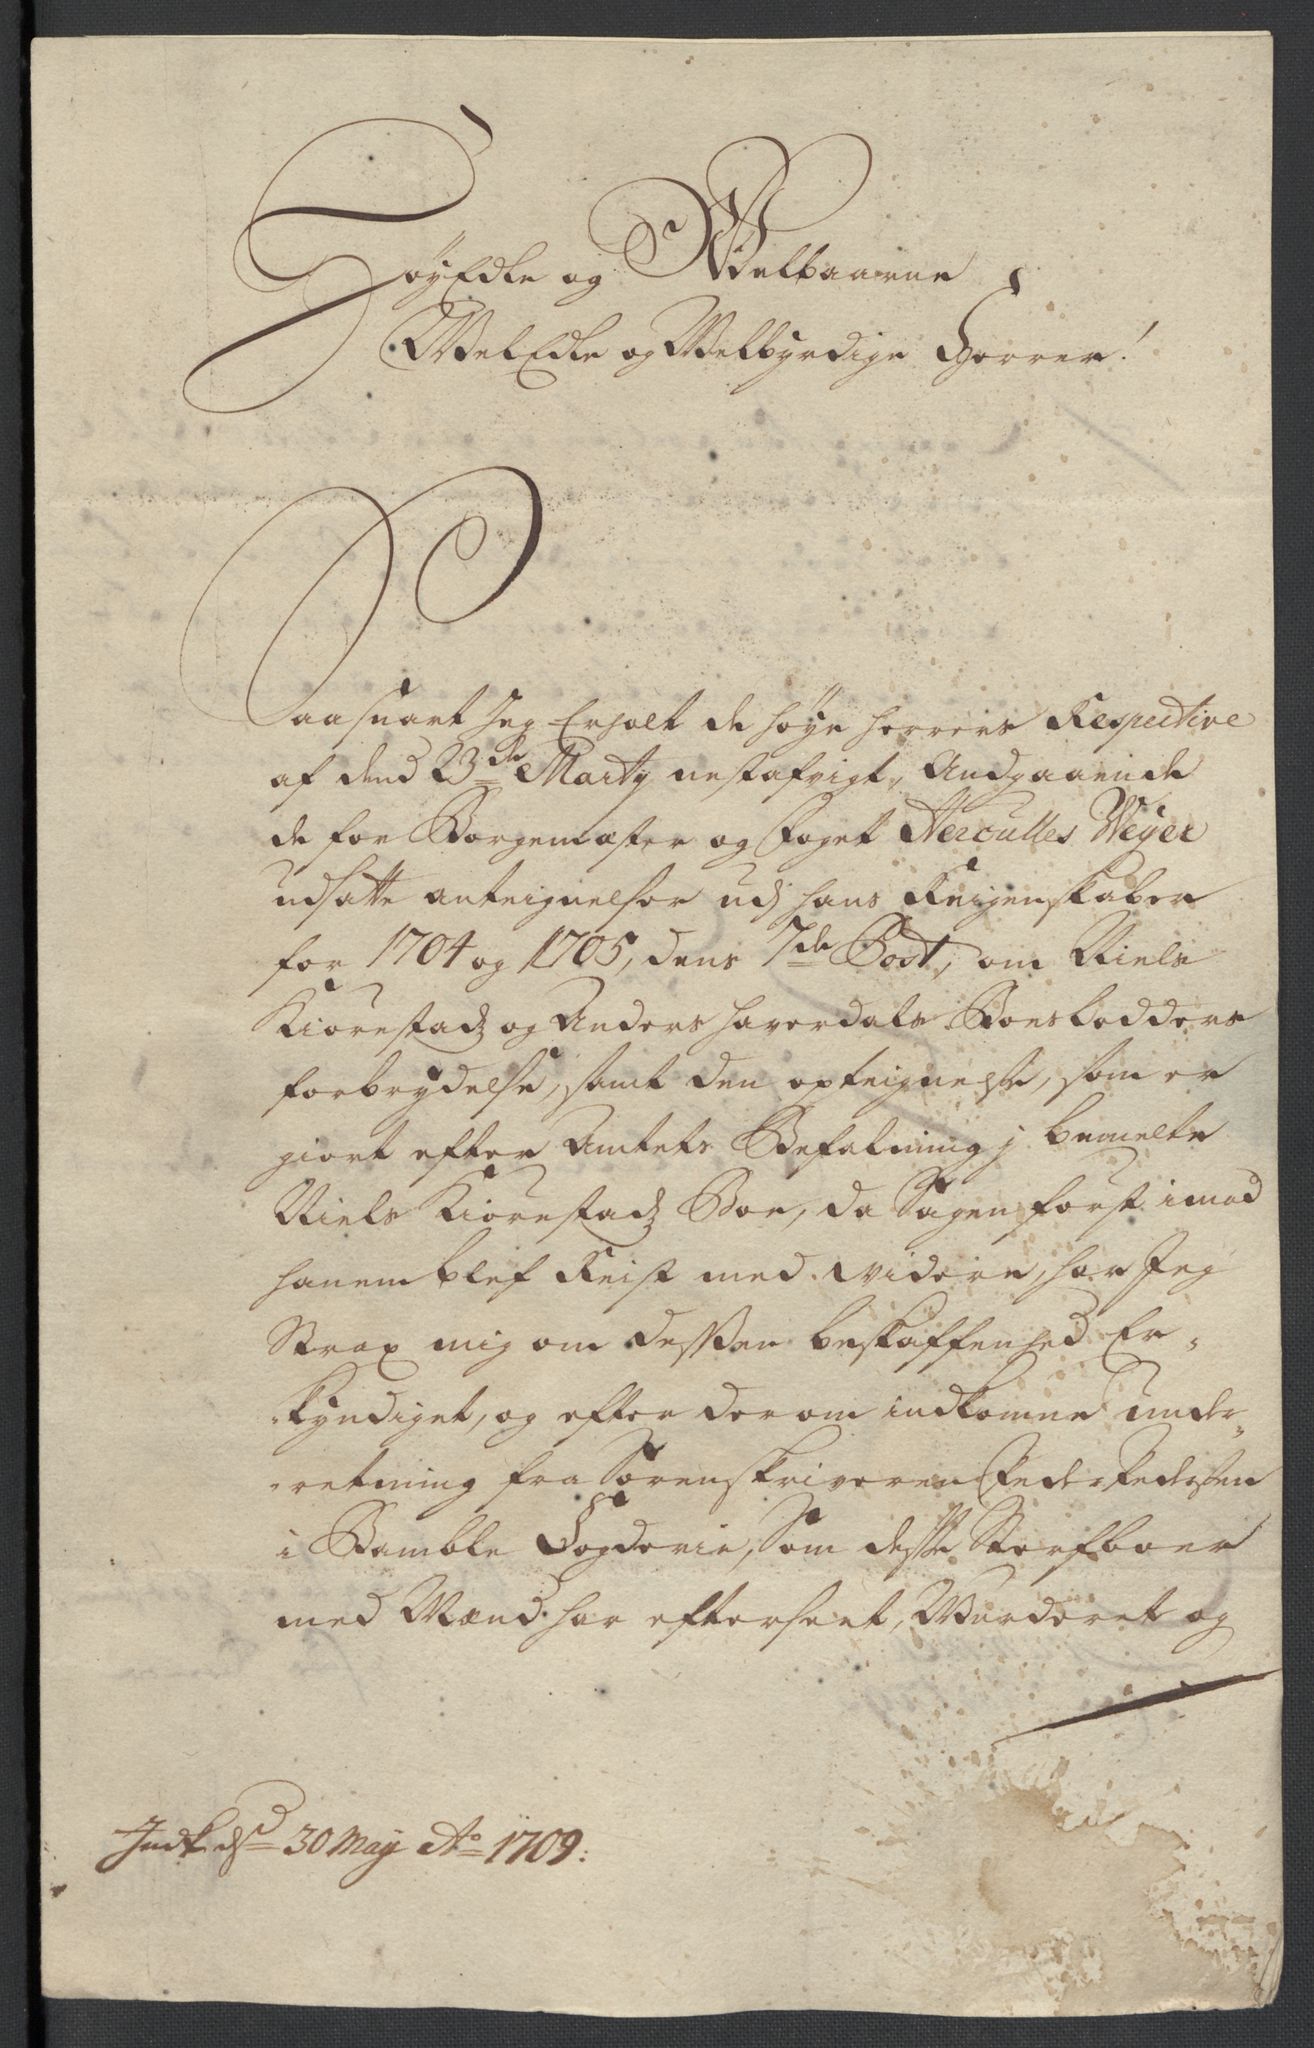 HøyEdle og Welbaarne
WelEdle og Welbyrdige Herrer!
Saasnart Jeg Erholt de høye herrers Respective
af dend 23de Marty nestafvigt, Andgaaende
de for Borgemester og Foget Herculles Weyer
udsatte anteignelser udj hans Reigenskaber
for 1704 og 1705, dens 7de Post, om Niels
Kiørestad og Anders haverdals Boeslodders
forbrydelse, samt den opteignelse, som er
giort efter Amtets Befalning j bemelte
Niels Kiørestads Boe, da Sagen først imod
hanem blef Reist med videre, har Jeg
Strax mig om dessen beskaffenhed Er-
kyndiget, og efter derom indkomne under-
retning fra Sorenskriveren Peder Pedersen
i Bamble Fogderie, Som disse Sterfboer
med Mænd har efterseet, Wurderet og
Indk. dend 30 May Ao 1709.